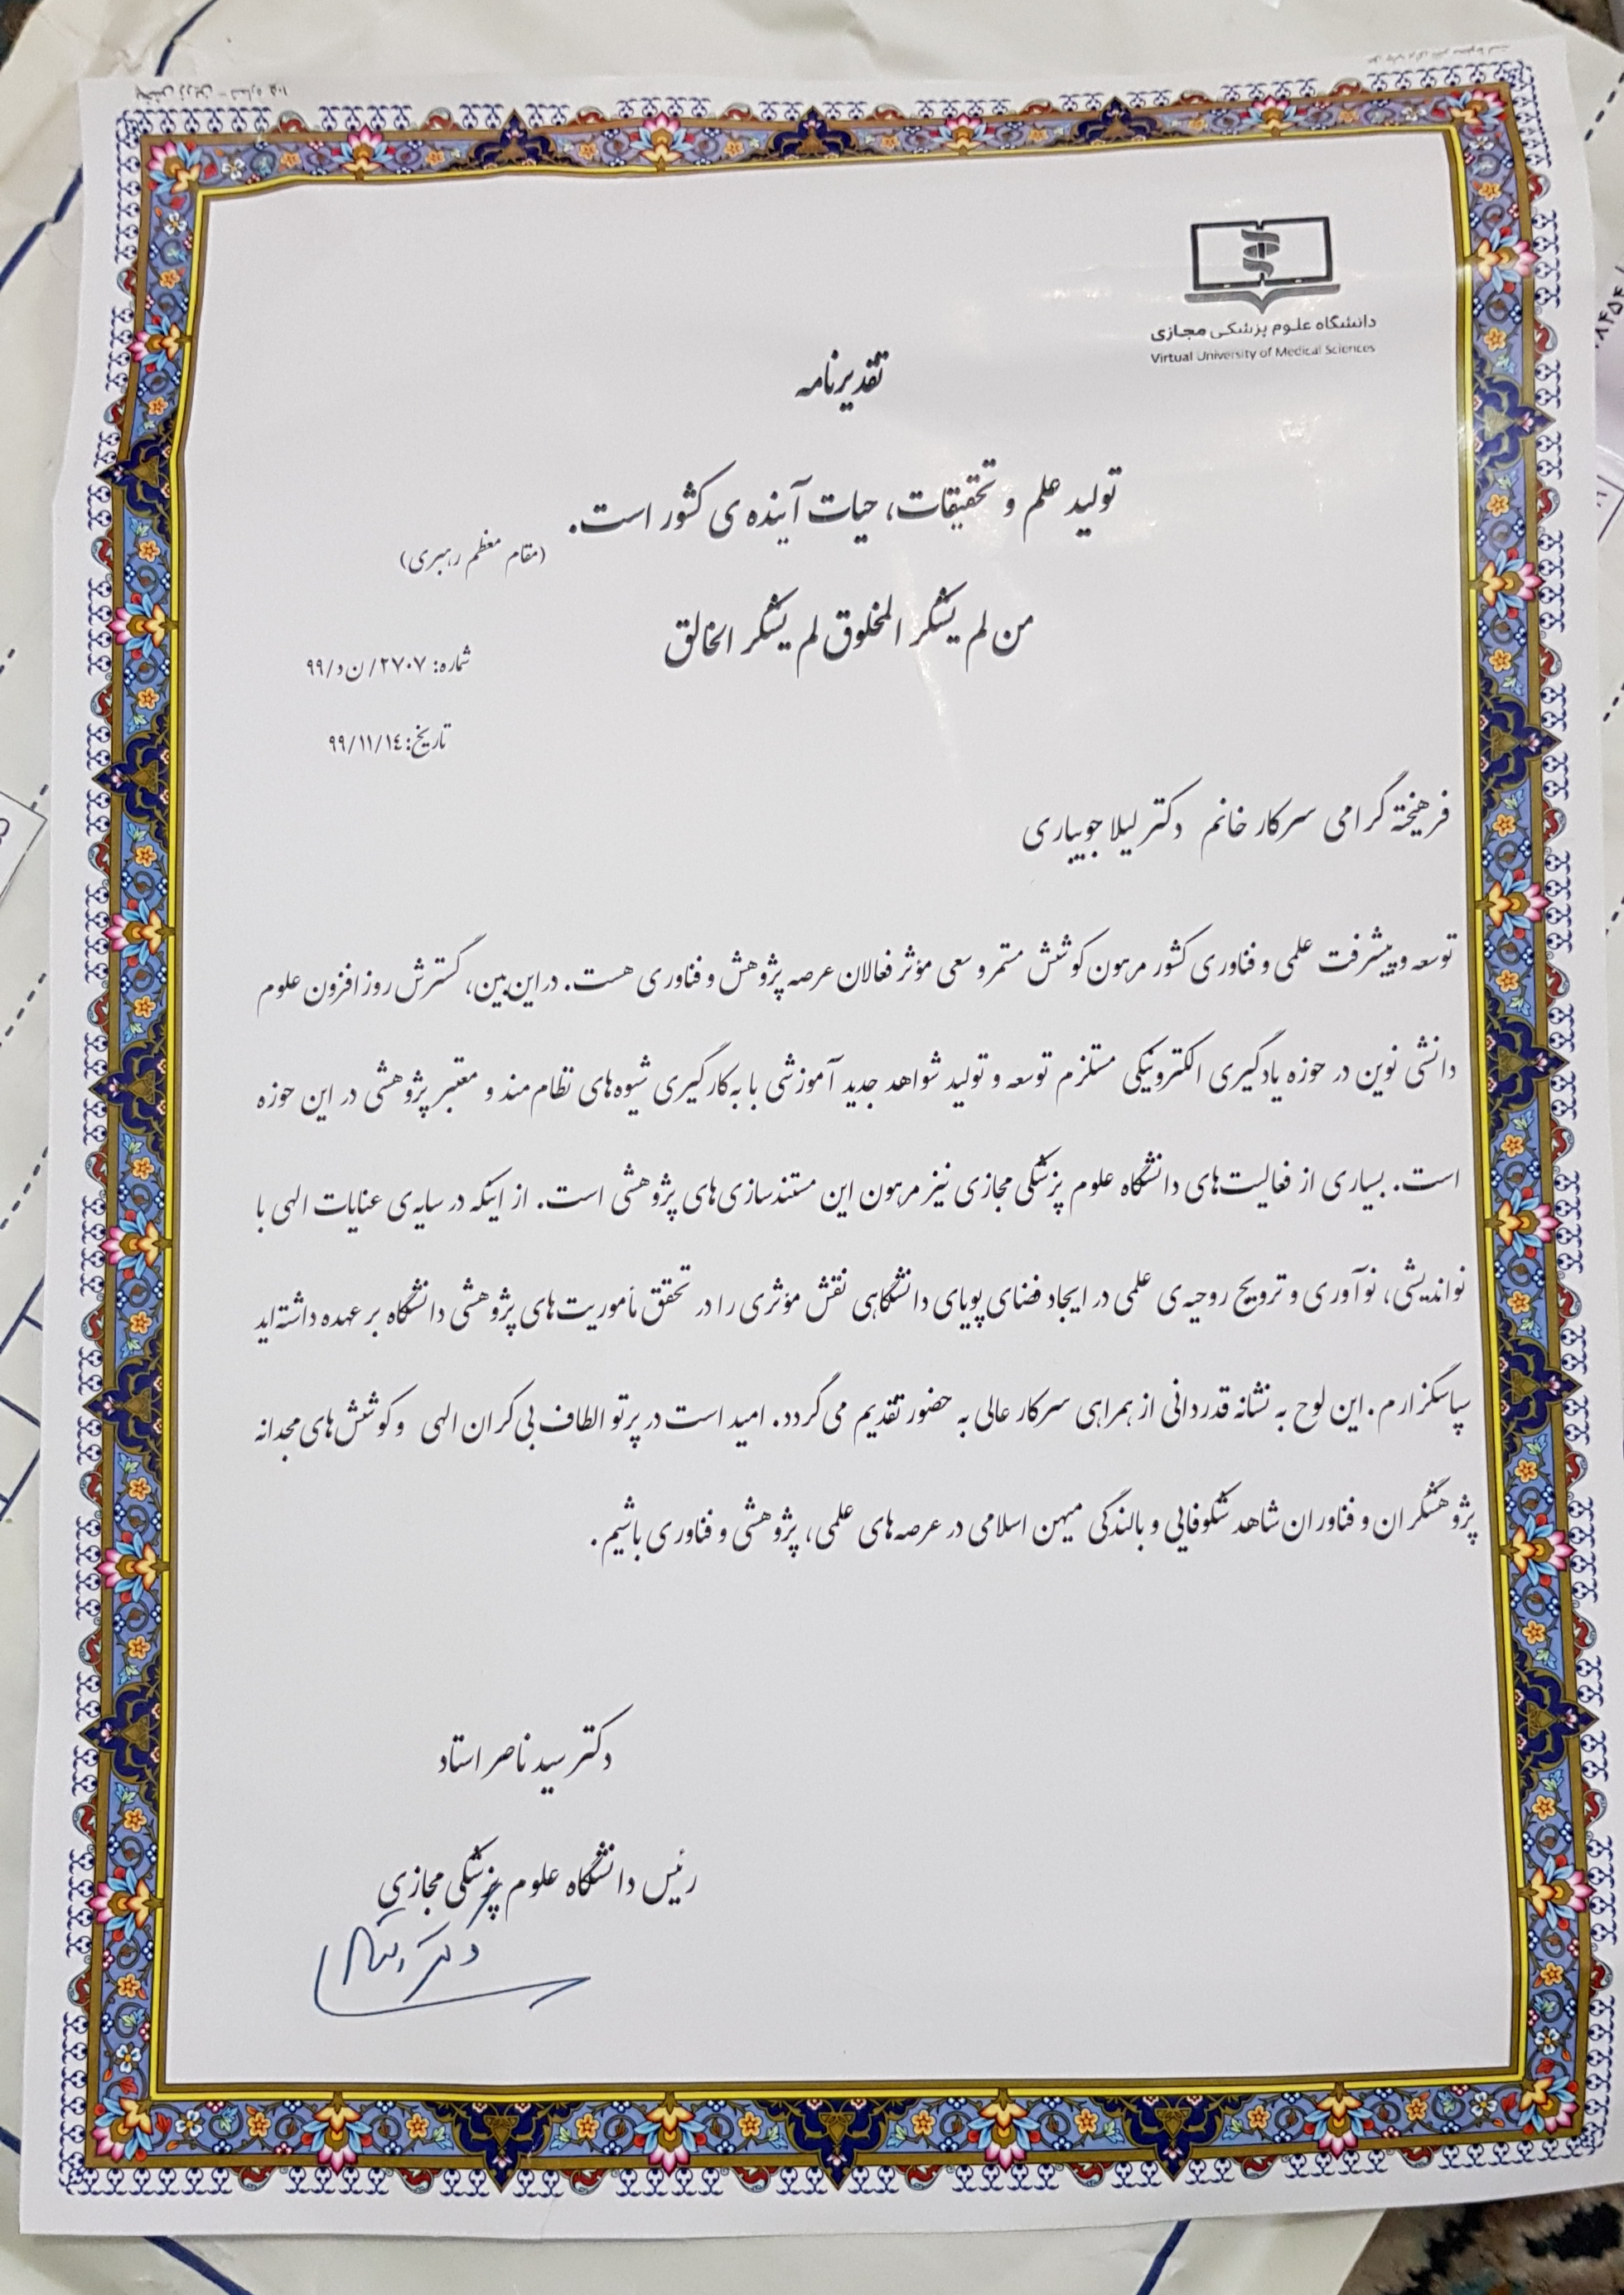 دانشگاه علوم پزشکی مجازی
Virtual University of Medical Sciences
تقدیرنامه
تولید علم و تحقیقات، حیات آینده ی کشور است.
(مقام معظم رهبری)
من لم یشکر المخلوق لم یشکر الخالق
شماره: ۲۷۰۷/ن د/۹۹
تاریخ: ۹۹/۱۱/۱٤
فرهیخته گرامی سرکار خانم دکتر لیلا جویباری
توسعه و پیشرفت علمی و فناوری کشور مرهون کوشش مستمر و سعی مؤثر فعالان عرصه پژوهش و فناوری هست. در این بین، گسترش روز افزون علوم
دانشی نوین در حوزه یادگیری الکترونیکی مستلزم توسعه و تولید شواهد جدید آموزشی با به‌کارگیری شیوه‌های نظام‌مند و معتبر پژوهشی در این حوزه
است. بسیاری از فعالیت‌های دانشگاه علوم پزشکی مجازی نیز مرهون این مستندسازی‌های پژوهشی است. از اینکه در سایه‌ی عنایات الهی با
نواندیشی، نوآوری و ترویج روحیه‌ی علمی در ایجاد فضای پویای دانشگاهی نقش مؤثری را در تحقق مأموریت‌های پژوهشی دانشگاه بر عهده داشته‌اید
سپاسگزارم. این لوح به نشانه قدردانی از همراهی سرکار عالی به حضور تقدیم می‌گردد. امید است در پرتو الطاف بی‌کران الهی و کوشش‌های مجدانه
پژوهشگران و فناوران شاهد شکوفایی و بالندگی میهن اسلامی در عرصه‌های علمی، پژوهشی و فناوری باشیم.
دکتر سید ناصر استاد
رئیس دانشگاه علوم پزشکی مجازی